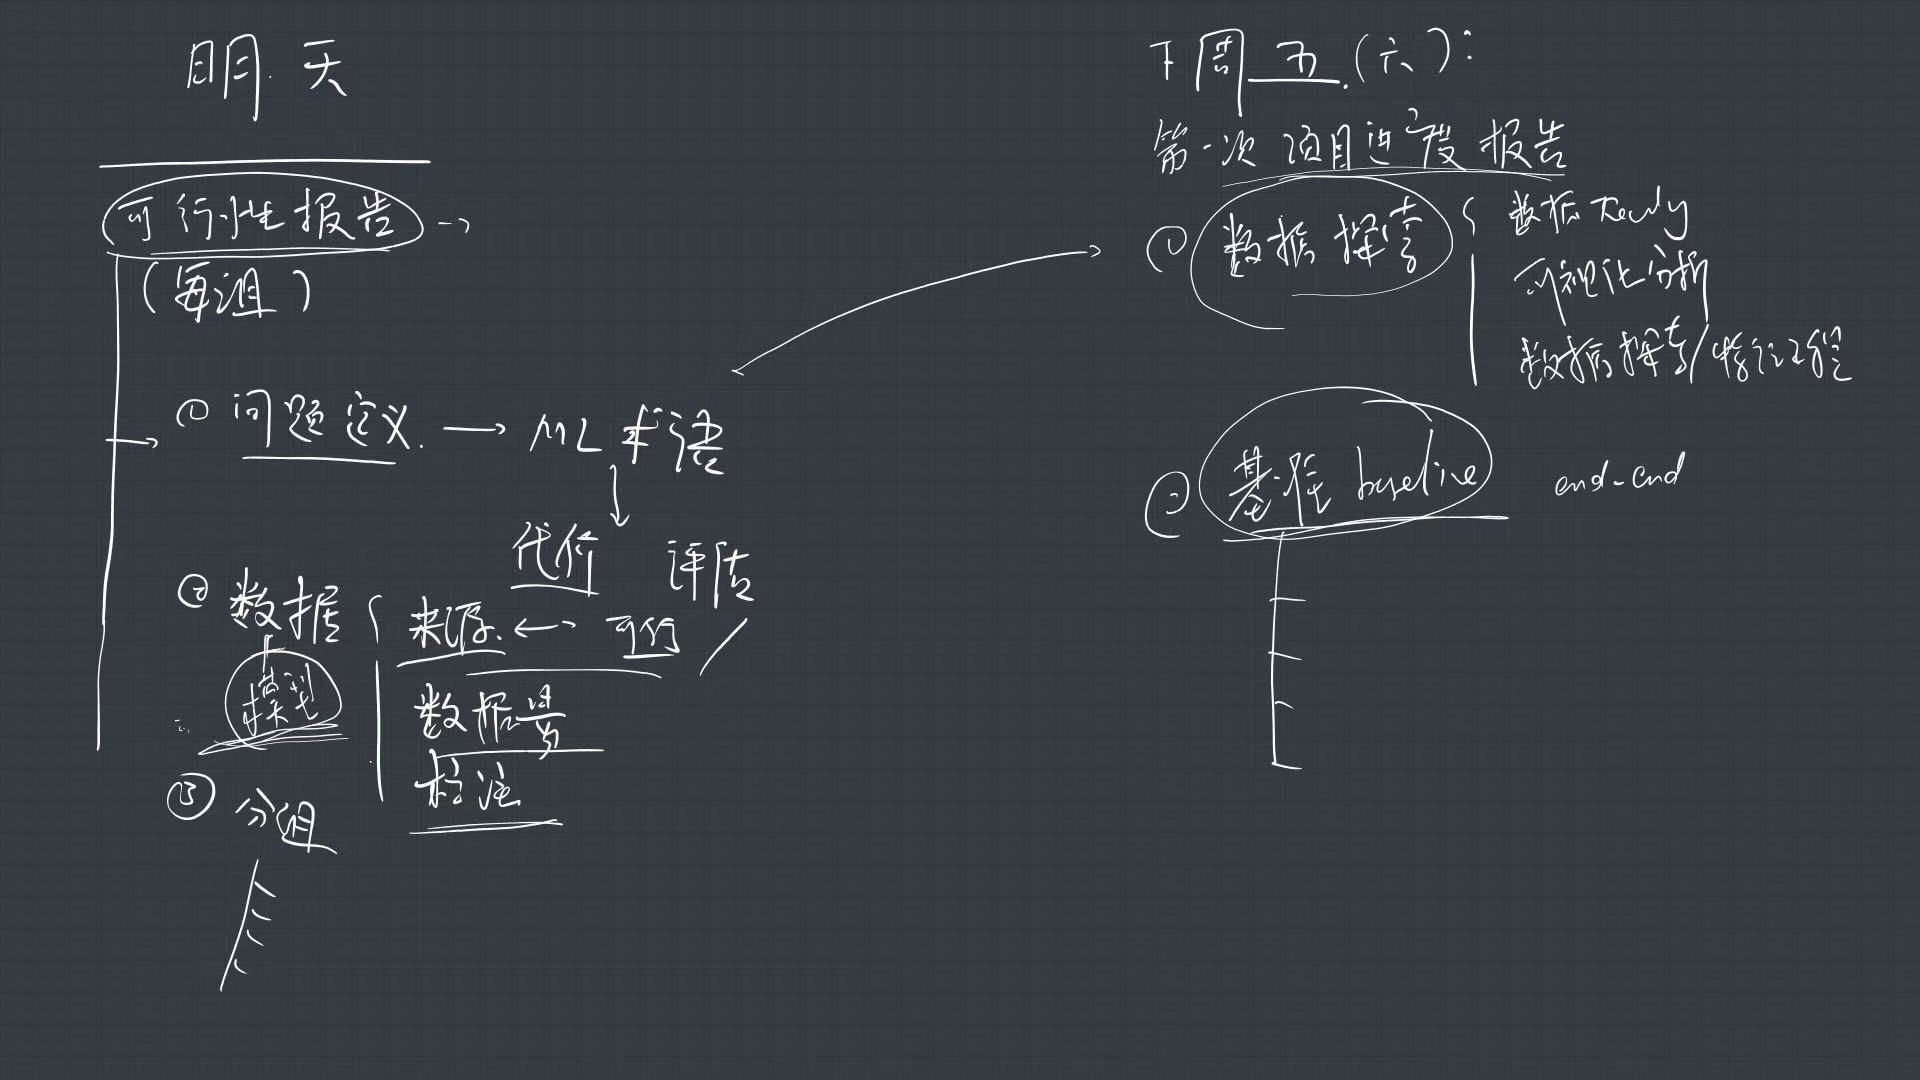 明天
可行性报告 →
(每组)
① 问题定义. → ML 术语
代价 评估
② 数据 { 来源. ←→ 可行 /
模型
数据量
标注
③ 分组
下周五.(六):
第一次项目进度报告
① 数据探索 { 数据 ready
可视化分析
数据探索/特征工程
② 基准 baseline end-end